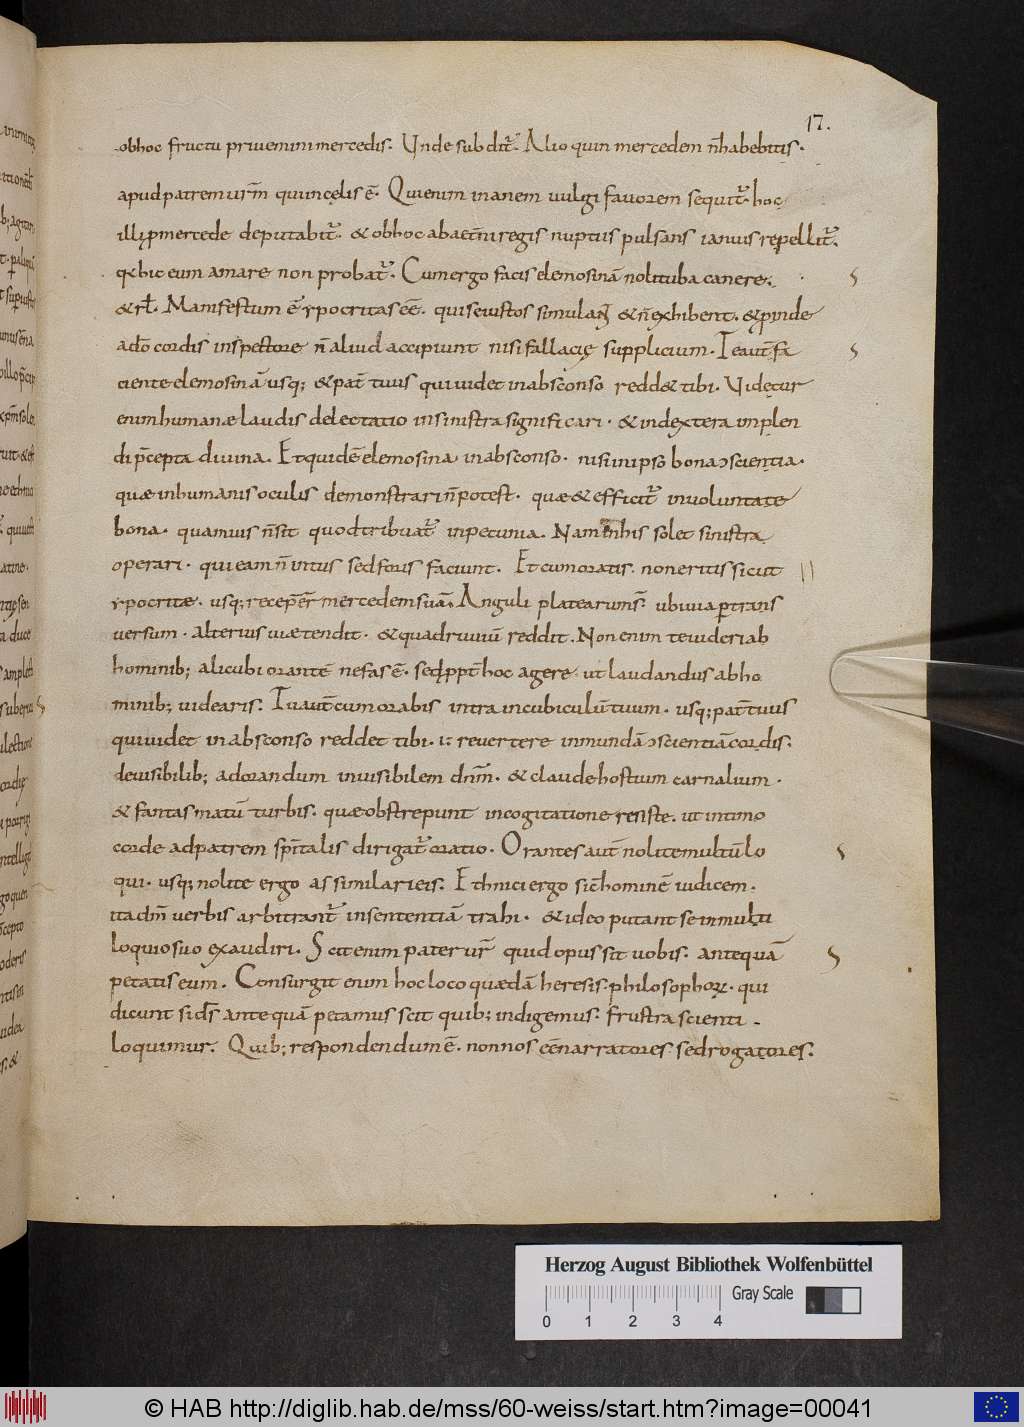 17.
obhoc fructu priuemini mercedis. Unde subdit̃. Alioquin mercedem n̄habebitis.
apudpatrem ur̄m quiincęlis ē. Quienim inanem uulgi fauorem sequit̃. hoc
illi ꝓmercede deputabit̃. & obhoc abaet̄ni regis nuptiis pulsans ianuis repellit̃.
q̄ hic eum amare non probat̃. Cumergo facis elemosinā nolituba canere.
& rł. Manifestum ē ypocritas eē. qui seiustos simulant & n̄ exhibent. & ꝓinde
ado cordis inspectore n̄ aliud accipiunt nisi fallacię supplicium. Teaut̄ fa
ciente elemosinā usq; & pat̄ tuus quiuidet inabsconso redd& tibi. Videtur
enim humanæ laudis delectatio insinistra significari. & indextera implen
di p̄cepta diuina. Et quidē elemosina inabsconso. nisi inipso bona ɔscientia.
quæ inhumanis oculis demonstrari n̄potest. quæ & efficit̃ inuoluntate
bona. quamuis n̄sit quod tribuat̃ inpecunia. Nam inhis solet sinistra
operari. qui eam n̄ intus sed foris faciunt. Et cumoratis. non eritis sicut
ypocritæ. usq; recep̄er̄ mercedem suā. Anguli platearum s̄. ubi uia ꝑtrans
uersum. alterius uiæ tendit. & quadriuiū reddit. Non enim teuideri ab
hominib; alicubi orantē nefas ē. sed ꝓpt̄ hoc agere ut laudandus abho
minib; uidearis. Tu aut̄ cum orabis intra incubiculū tuum. usq; pat̄ tuus
qui uidet inabsconso reddet tibi. i: reuertere inmundā ɔscientiā cordis.
deuisibilib; adorandum inuisibilem dn̄m. & claude hostium carnalium.
& fantasmatū turbis. quæ obstrepunt incogitatione resiste. ut intimo
corde adpatrem sp̄italis dirigat̃ oratio. Orantes aut̄ nolite multū lo
qui. usq; nolite ergo assimilari eis. Ethnici ergo sic̄ hominē iudicem.
ita dm̄ uerbis arbitrant̃ insententiā trahi. & ideo putant se inmulti
loquio suo exaudiri. Scit enim pater ur̄ quid opus sit uobis. antequā
petatis eum. Consurgit enim hoc loco quædā heresis. philosophoꝝ. qui
dicunt si ds̄ ante quā petamus scit quib; indigemus. frustra scienti
loquimur. Quib; respondendum ē. non nos eē narratores. sed rogatores.
Herzog August Bibliothek Wolfenbüttel
Gray Scale
0 1 2 3 4
© HAB http://diglib.hab.de/mss/60-weiss/start.htm?image=00041